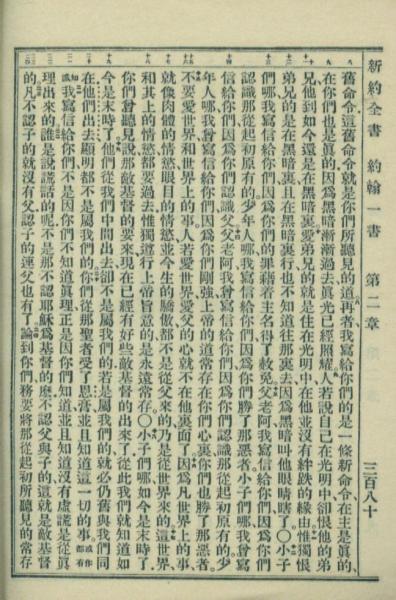 新約全書 約翰一書 第二章 三百八十
舊命令這舊命令就是你們所聽見的道再者我寫給你們的是一條新命令在主是眞的
在你們也是眞的因爲黑暗漸漸過去眞光已經照耀人若說自己在光明中卻恨他的弟
兄他到如今還是在黑暗裏愛弟兄的就是住在光明中在他並沒有絆跌的緣由惟獨恨
弟兄的是在黑暗裏且在黑暗裏行也不知道往那裏去因爲黑暗叫他眼睛瞎了〇小子
們哪我寫信給你們因爲你們的罪藉着主名得了赦免父老阿我寫信給你們因爲你們
認識那從起初原有的少年人哪我寫信給你們因爲你們勝了那惡者小子們哪我曾寫
信給你們因爲你們認識父父老阿我曾寫信給你們因爲你們認識那從起初原有的少
年人哪我曾寫信給你們因爲你們剛強上帝的道常存在你們心裏你們也勝了那惡者
不要愛世界和世界上的事人若愛世界愛父的心就不在他裏面了因爲凡世界上的事
就像肉體的情慾眼目的情慾並今生的驕傲都不是從父來的乃是從世界來的這世界
和其上的情慾都要過去惟獨遵行上帝旨意的是永遠常存〇小子們哪如今是末時了
你們曾聽見說那敵基督的要來現在已經有好些敵基督的出來了從此我們就知道如
今是末時了他們從我們中間出去卻不是屬我們的若是屬我們的就必仍舊與我們同
在他們出去顯明都不是屬我們的你們從那聖者受了恩膏並且知道這一切的事或作都有
知識我寫信給你們不是因你們不知道眞理正是因你們知道並且知道沒有虛謊是從眞
理出來的誰是說謊話的呢不是那不認耶穌爲基督的麽不認父與子的這就是敵基督
的凡不認子的就沒有父認子的連父也有了論到你們務要將那從起初所聽見的常存